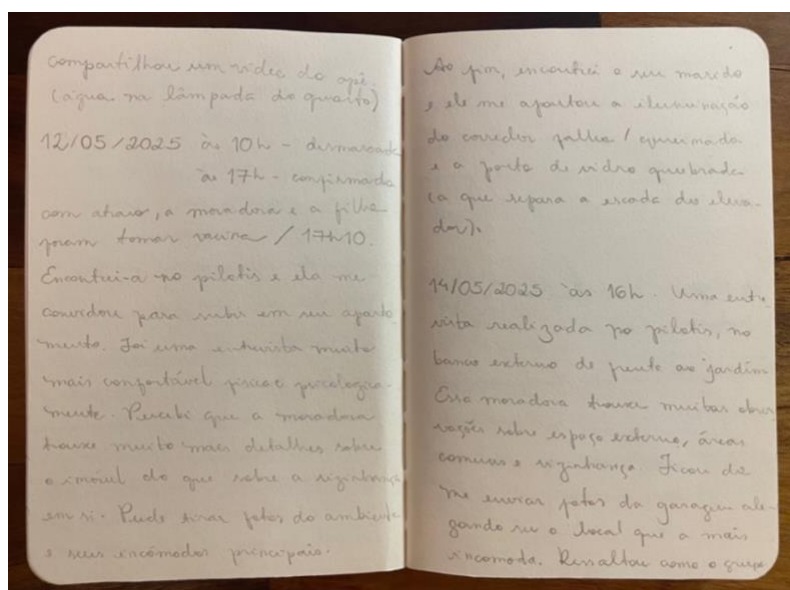 compartilhou um vídeo do apê.
(água na lâmpada do quarto)
12/05/2025 às 10h - desmarcada
às 17h - confirmada
com atraso, a moradora e a filha
foram tomar vacina / 17h10.
Encontrei-a no pilotis e ela me
convidou para subir em seu aparta
mento. Foi uma entrevista muito
mais confortável física e psicologica-
mente. Percebi que a moradora
trouxe muito mais detalhes sobre
o imóvel do que sobre a vizinhança
em si. Pude tirar fotos do ambiente
e seus incômodos principais.
Ao fim, encontrei o seu marido
e ele me apontou a iluminação
do corredor falha / queimada
e a porta de vidro quebrada
(a que separa a escada do eleva-
dor).
14/05/2025 às 16h. Uma entre
vista realizada no pilotis, no
banco externo de frente ao jardim
Essa moradora trouxe muitas obser
vações sobre espaço externo, áreas
comuns e vizinhança. Ficou de
me enviar fotos da garagem ale-
gando ser o local que a mais
incomoda. Ressaltou como o grupo